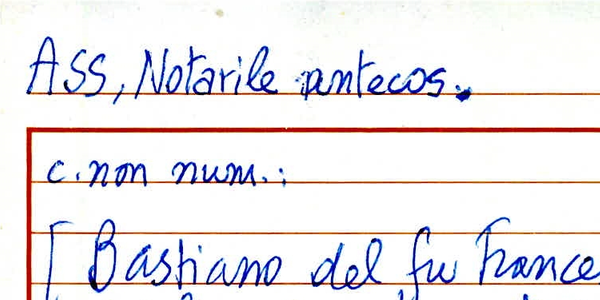 ASS, Notarile antecos.
c. non num.:
[ Bastiano del fu France